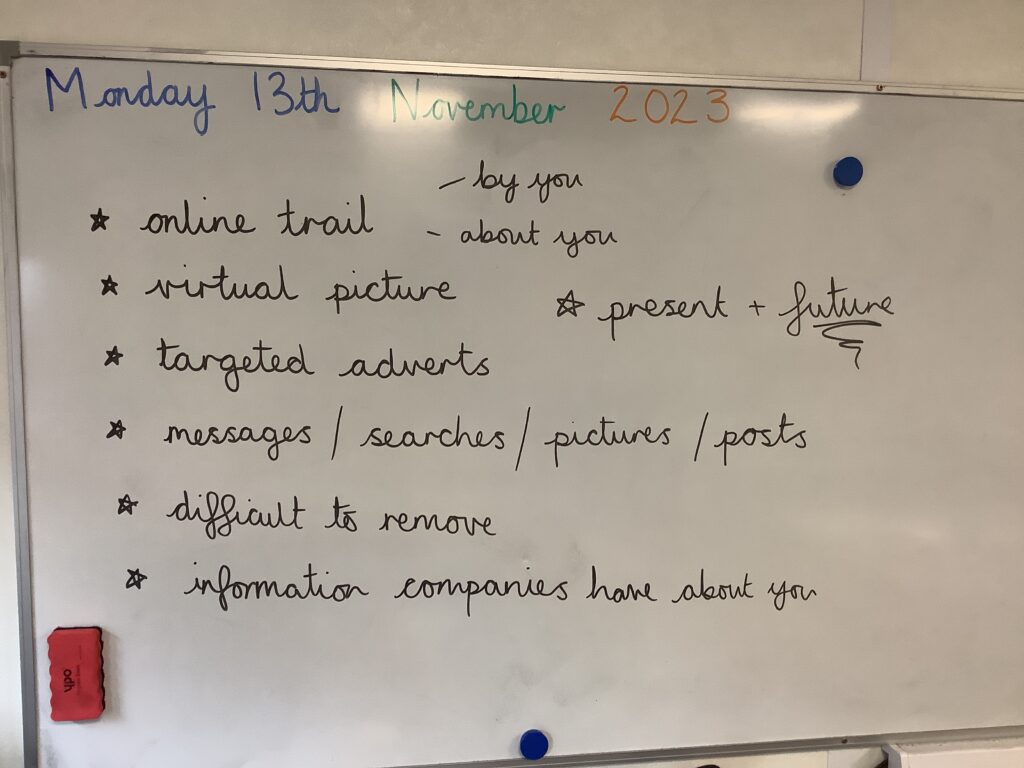 Monday 13th November 2023
- by you
* online trail - about you
* virtual picture
* present + future
* targeted adverts
* messages / searches / pictures / posts
* difficult to remove
* information companies have about you